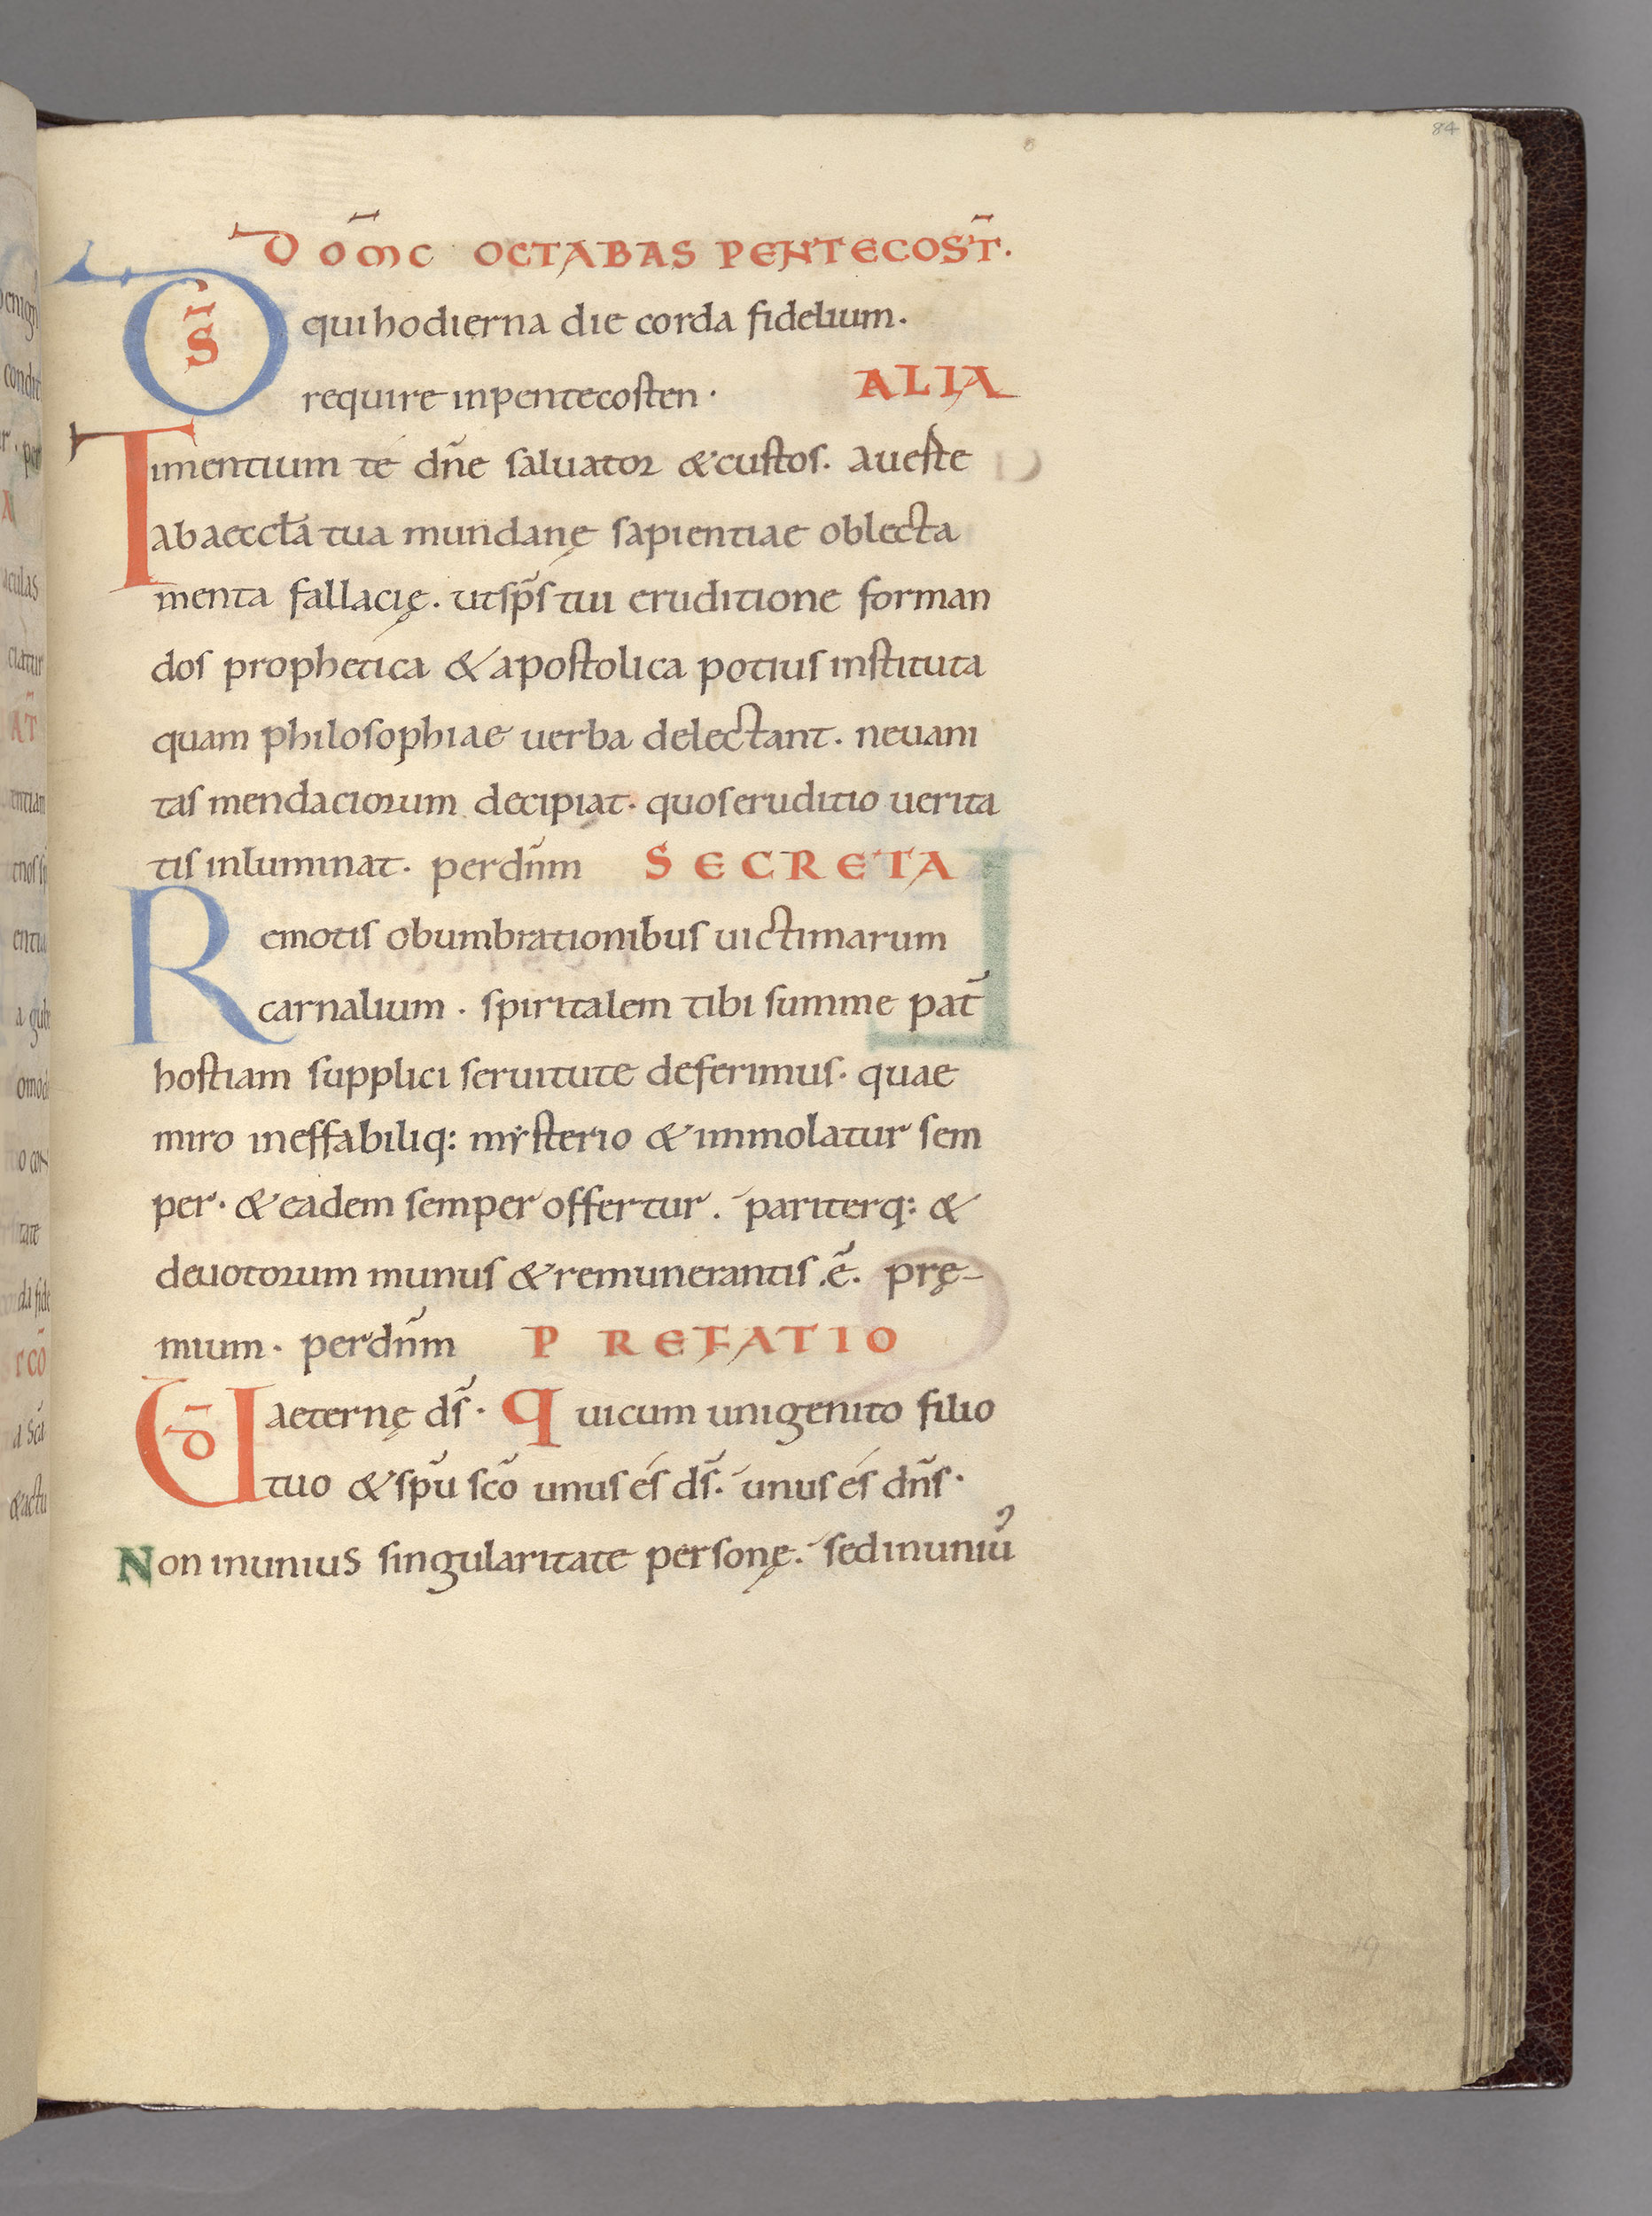 84
DOM̄C OCTABAS PENTECOST̄.
D̄S qui hodierna die corda fidelium.
require inpentecosten · ALIA
Timentium té dñe saluator &custos. aueste
ab aeccła tua mundanę sapientiae oblecta
menta fallacię. utsp̄s tui eruditione forman
dos prophetica & apostolica potius instituta
quam philosophiae uerba delectant. neuani
tas mendaciorum decipiat. quos eruditio uerita
tis inluminat. perdn̄m SECRETA
Remotis obumbrationibus uictimarum
carnalium . spiritalem tibi summe pat̄
hostiam supplici seruitute deferimus. quae
miro ineffabiliq: mysterio & immolatur sem
per. & eadem semper offertur. pariterq: &
deuotorum munus & remunerantis .ē. prę-
mium. perdn̄m PREFATIO
UD̄ aeternę ds̄. Quicum unigenito filio
tuo & spū scō unus és ds̄. unus és dn̄s.
Non inunius singularitate personę. sed inuniū
19